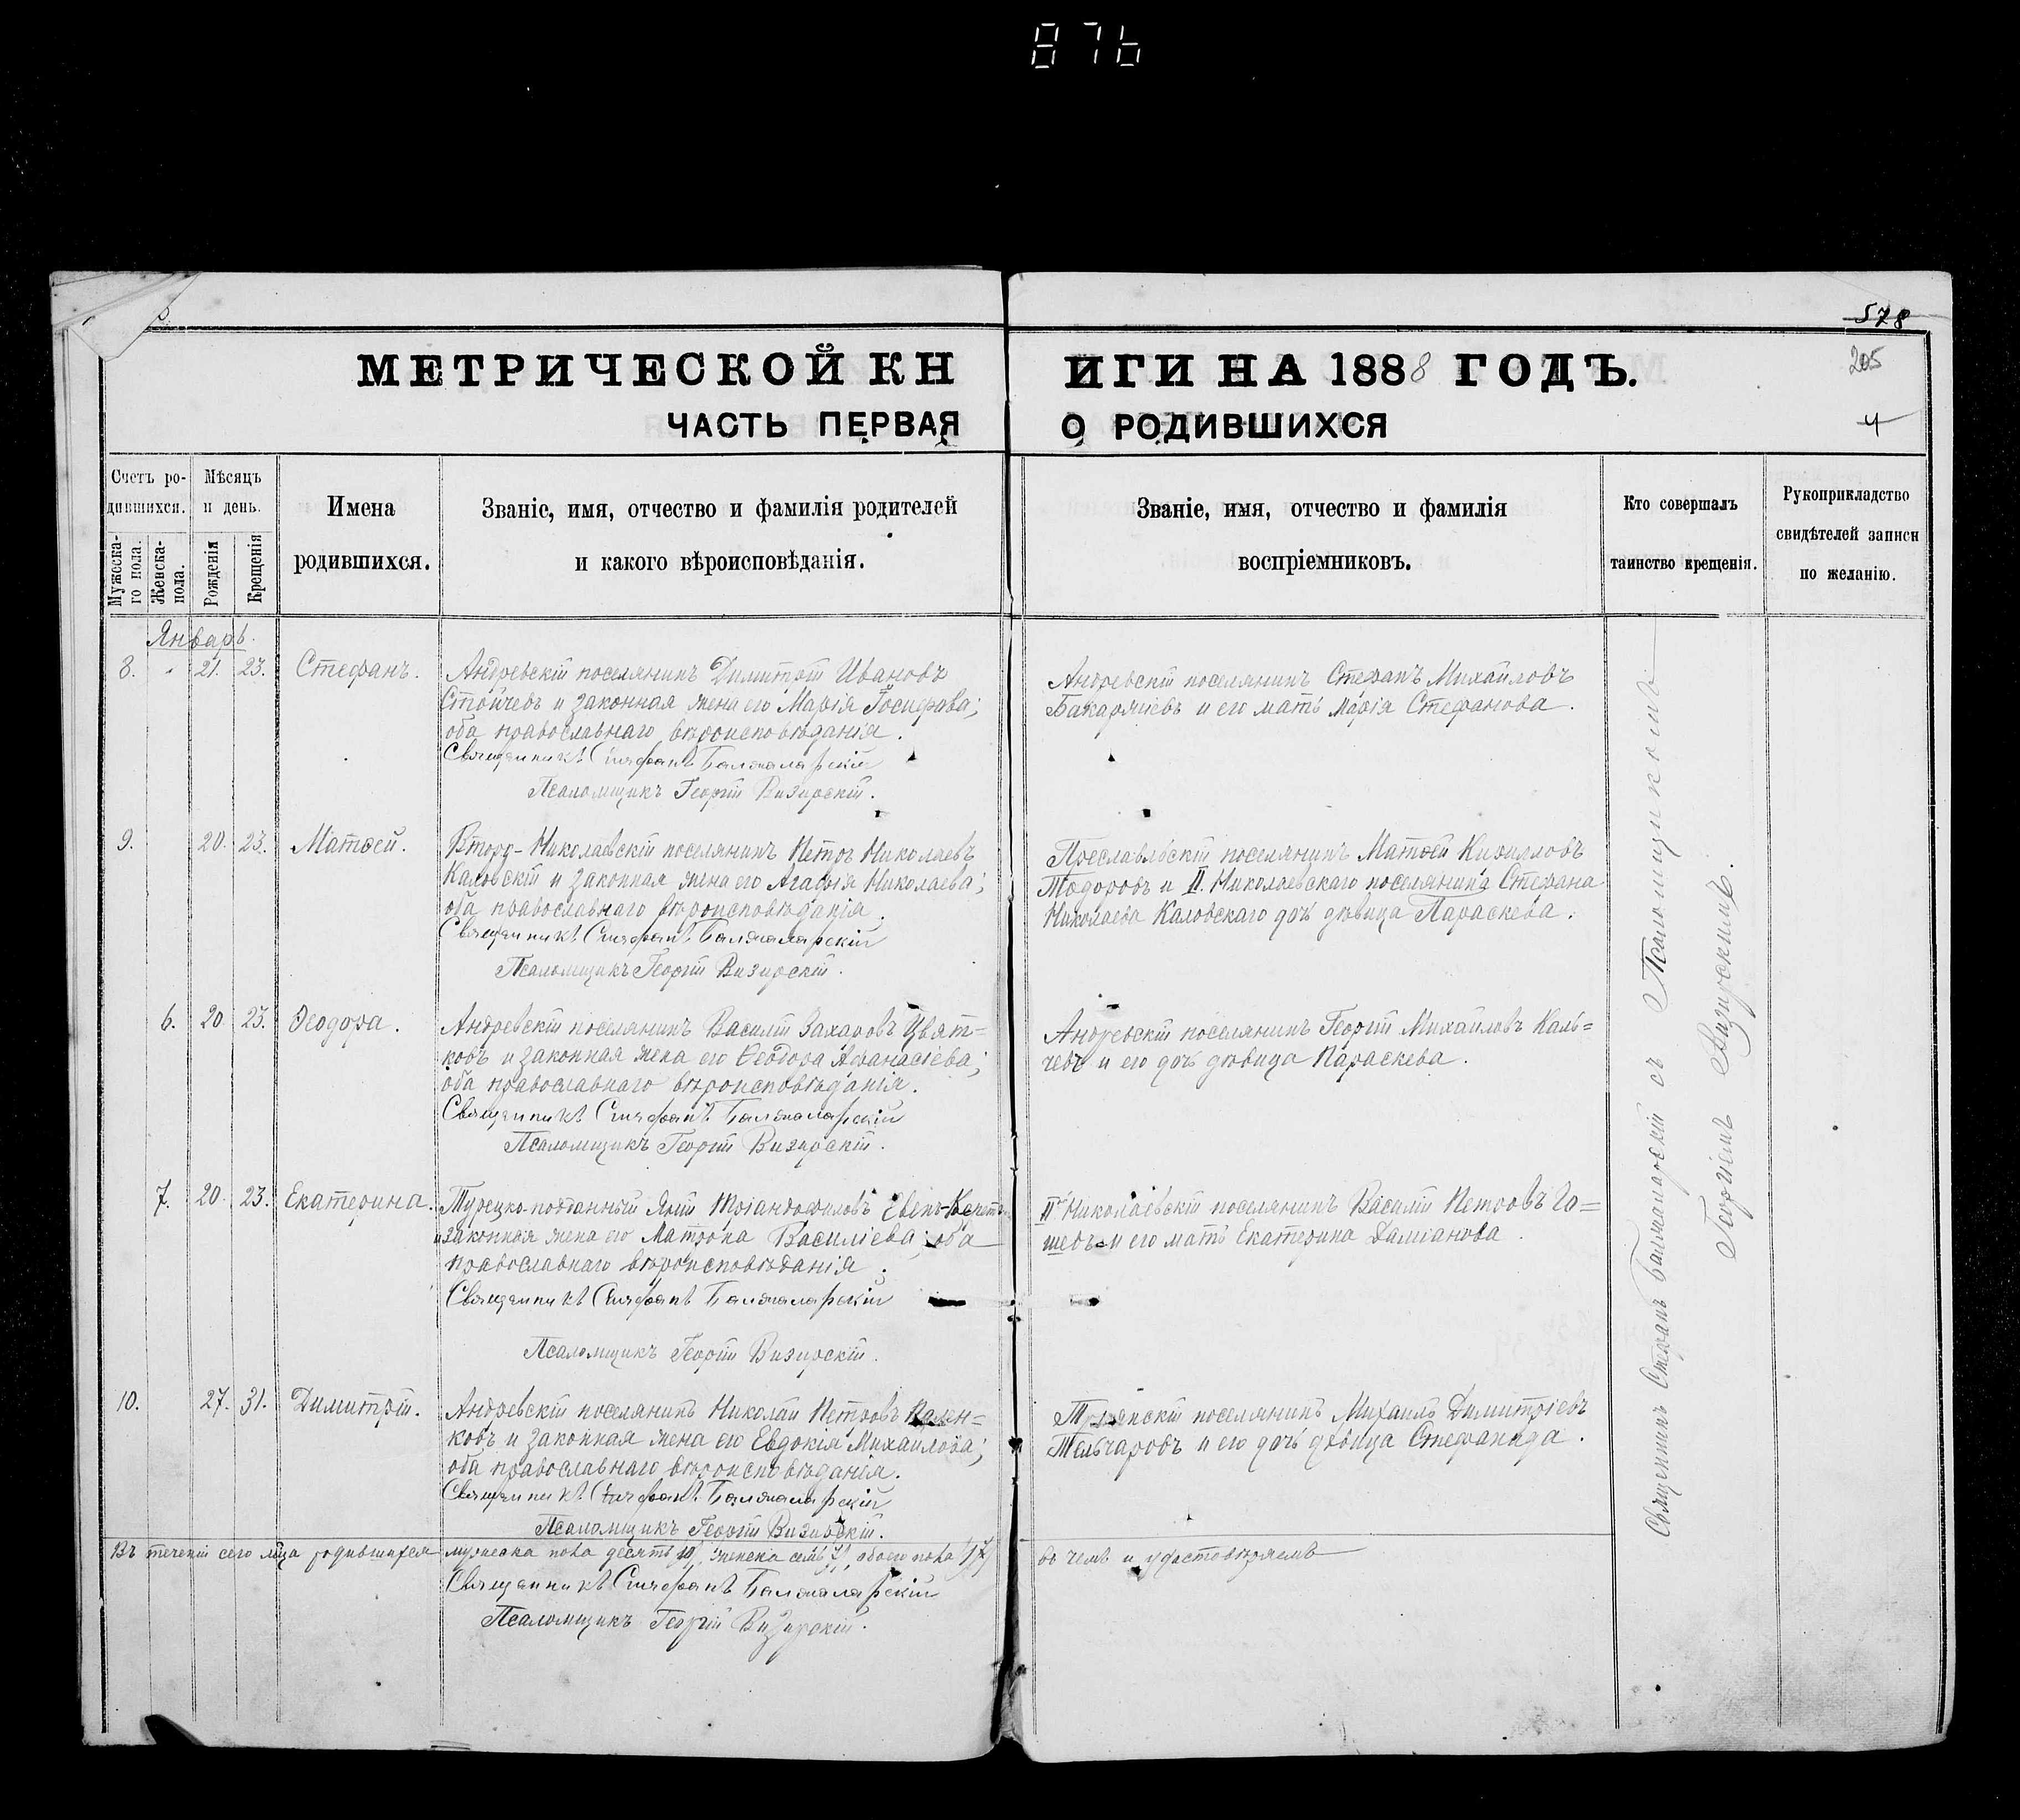 876
578
205
4
МЕТРИЧЕСКОЙ КНИГИ НА 1888 ГОДЪ.
ЧАСТЬ ПЕРВАЯ О РОДИВШИХСЯ
Счетъ родившихся.
Мужескаго пола.
Женска- пола.
Мѣсяцъ и день.
Рожденія
Крещенія
Имена родившихся.
Званіе, имя, отчество и фамилія родителей
и какого вѣроисповѣданія.
Званіе, имя, отчество и фамилія
воспріемниковъ.
Кто совершалъ
таинство крещенія.
Рукоприкладство
свидѣтелей записи
по желанію.
Январь.
8. 21. 23. Стефанъ.
Андревскій поселянинъ Димитрій Ивановъ
Стойчевъ и законная жена его Марія Іосифова;
оба православнаго вѣроисповѣданія.
Священникъ Стефанъ Балжаларскій
Псаломщикъ Георгій Визирскій.
Андревскій поселянинъ Стефанъ Михайловъ
и его мать Марія Стефанова.
9. 20. 23. Матѳей.
Втору-Николаевскій поселянинъ Петръ Николаевъ
Каловскій и законная жена его Агафія Николаева;
оба православнаго вѣроисповѣданія.
Священникъ Стефанъ Балжаларскій
Псаломщикъ Георгій Визирскій.
Преславльскій поселянинъ Матѳей Кирилловъ
Тодоровъ и II. Николаевскаго поселянина Стефана
Николаева Каловскаго дочь дѣвица Параскева.
6. 20. 23. Ѳеодора.
Андревскій поселянинъ Василій Захаровъ Цвят=
ковъ и законная жена его Ѳеодора Афанасіева;
оба православнаго вѣроисповѣданія.
Священникъ Стефанъ Балжаларскій
Псаломщикъ Георгій Визирскій.
Андревскій поселянинъ Георгій Михайловъ Каль=
чевъ и его дочь дѣвица Параскева.
7. 20. 23. Екатерина.
Турецко-подданный
и законная жена его Матрона Василіева; оба
православнаго вѣроисповѣданія.
Священникъ Стефанъ Балжаларскій
Псаломщикъ Георгій Визирскій.
II Николаевскій поселянинъ Василій Петровъ Го=
шевъ и его мать Екатерина Даміанова.
10. 27. 31. Димитрій.
Андревскій поселянинъ Николай Петровъ
ковъ и законная жена его Евдокія Михайлова;
оба православнаго вѣроисповѣданія.
Священникъ Стефанъ Балжаларскій
Псаломщикъ Георгій Визирскій.
поселянинъ Михаилъ Димитріевъ
Тельчаровъ и его дочь дѣвица Стефанида.
Въ теченіи сего мѣсяца родившихся мужеска пола десять /10/, женска семь /7/, обоего пола /17/ въ чемъ и удостовѣряемъ
Священникъ Стефанъ Балжаларскій
Псаломщикъ Георгій Визирскій.
Священникъ Стефанъ Балжаларскій съ Псаломщикомъ
Георгіемъ Визирскимъ.